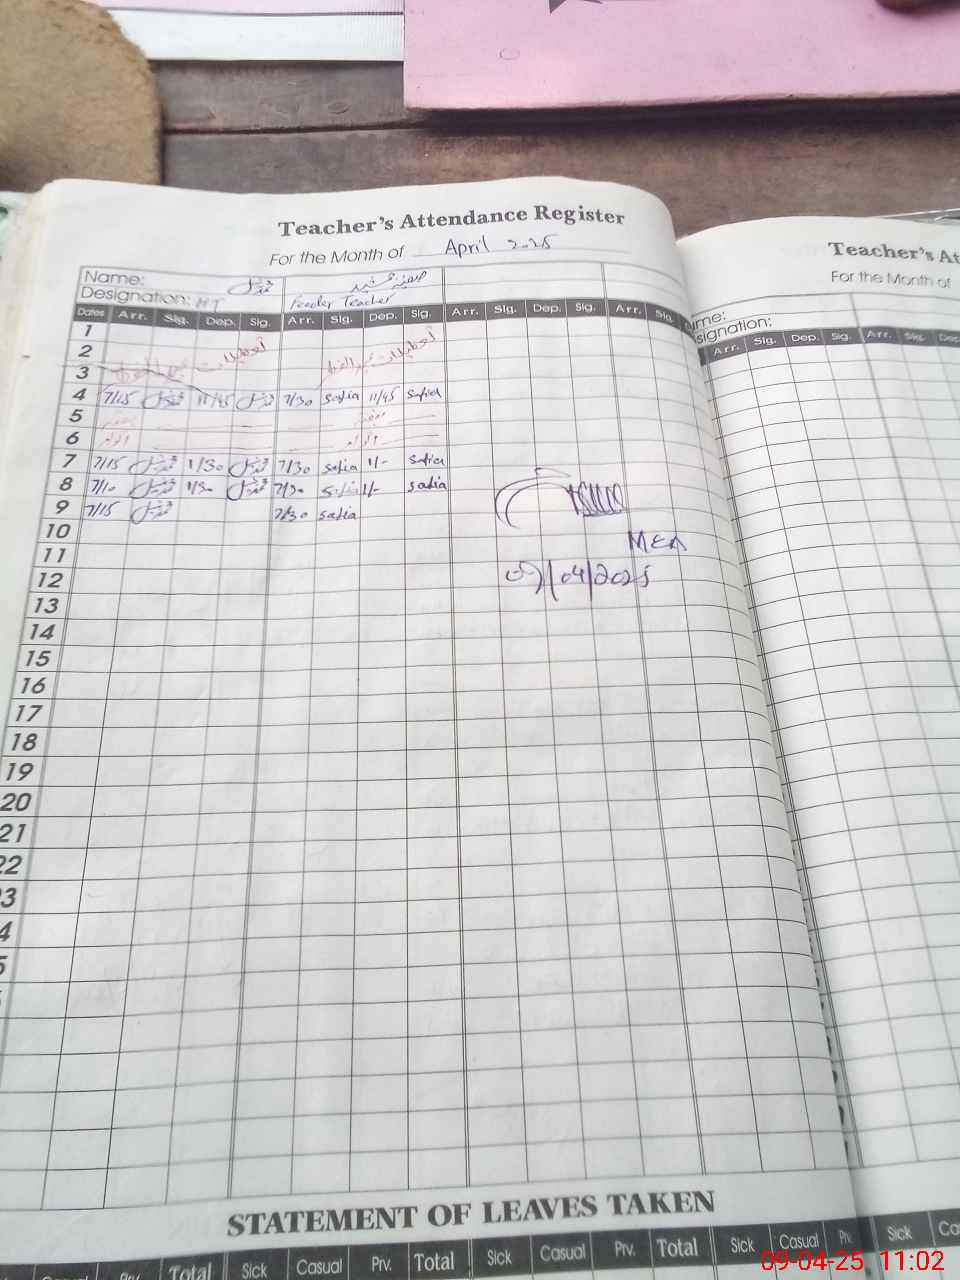 Teacher's Attendance Register
For the Month of April 2025
Name:
Designation: HT Feeder Teacher
Dates Arr. Sig. Dep. Sig. Arr. Sig. Dep. Sig. Arr. Sig. Dep. Sig. Arr. Sig.
1
2 تعطیلات عیدالفطر تعطیلات عیدالفطر
3
4 7/15 11/45 7/30 Safia 11/45 Safia
5
6 اتوار اتوار
7 7/15 1/30 7/30 Safia 1/- Safia
8 7/10 1/30 7/30 Safia 1/- Safia
9 7/15 7/30 Safia
10
11
12
13
14
15
16
17
18
19
20
21
22
23
4
5
MEA
09/04/2025
STATEMENT OF LEAVES TAKEN
Casual Prv. Total Sick Casual Prv. Total Sick Casual Prv. Total Sick Casual Prv. Sick Ca
Teacher's At
For the Month of
me:
signation:
Arr. Sig. Dep. Sig. Arr. Sig. Dep
09-04-25 11:02